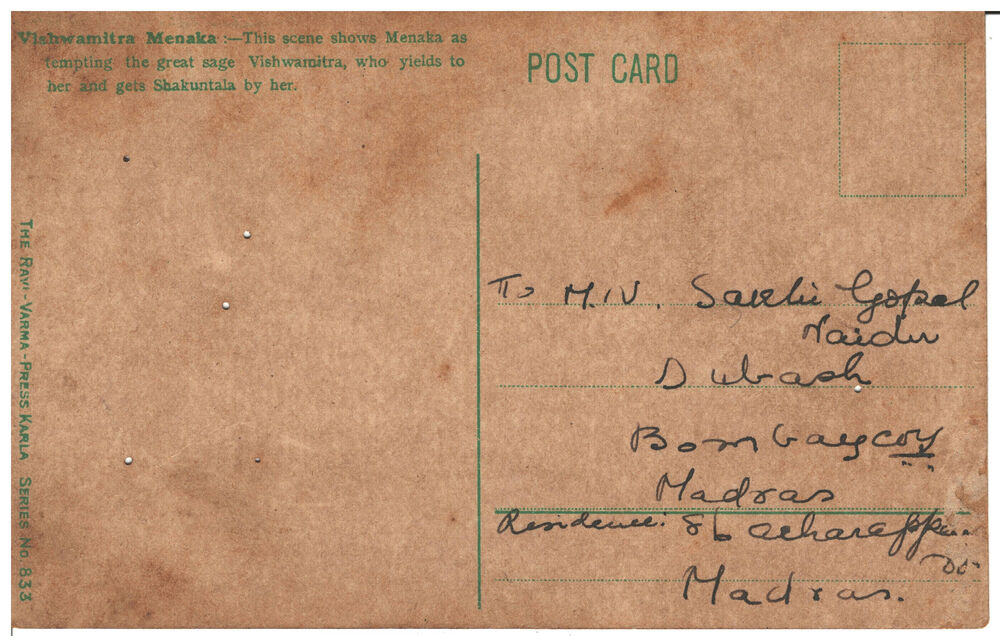 Vishwamitra Menaka :—This scene shows Menaka as
tempting the great sage Vishwamitra, who yields to
her and gets Shakuntala by her.
POST CARD
THE RAVI-VARMA-PRESS KARLA SERIES No 833
To M.N. Sakhi Gopal
Naidu
Dubash
Bombay coy
Madras
Residence: 86 acharappan
Madras.